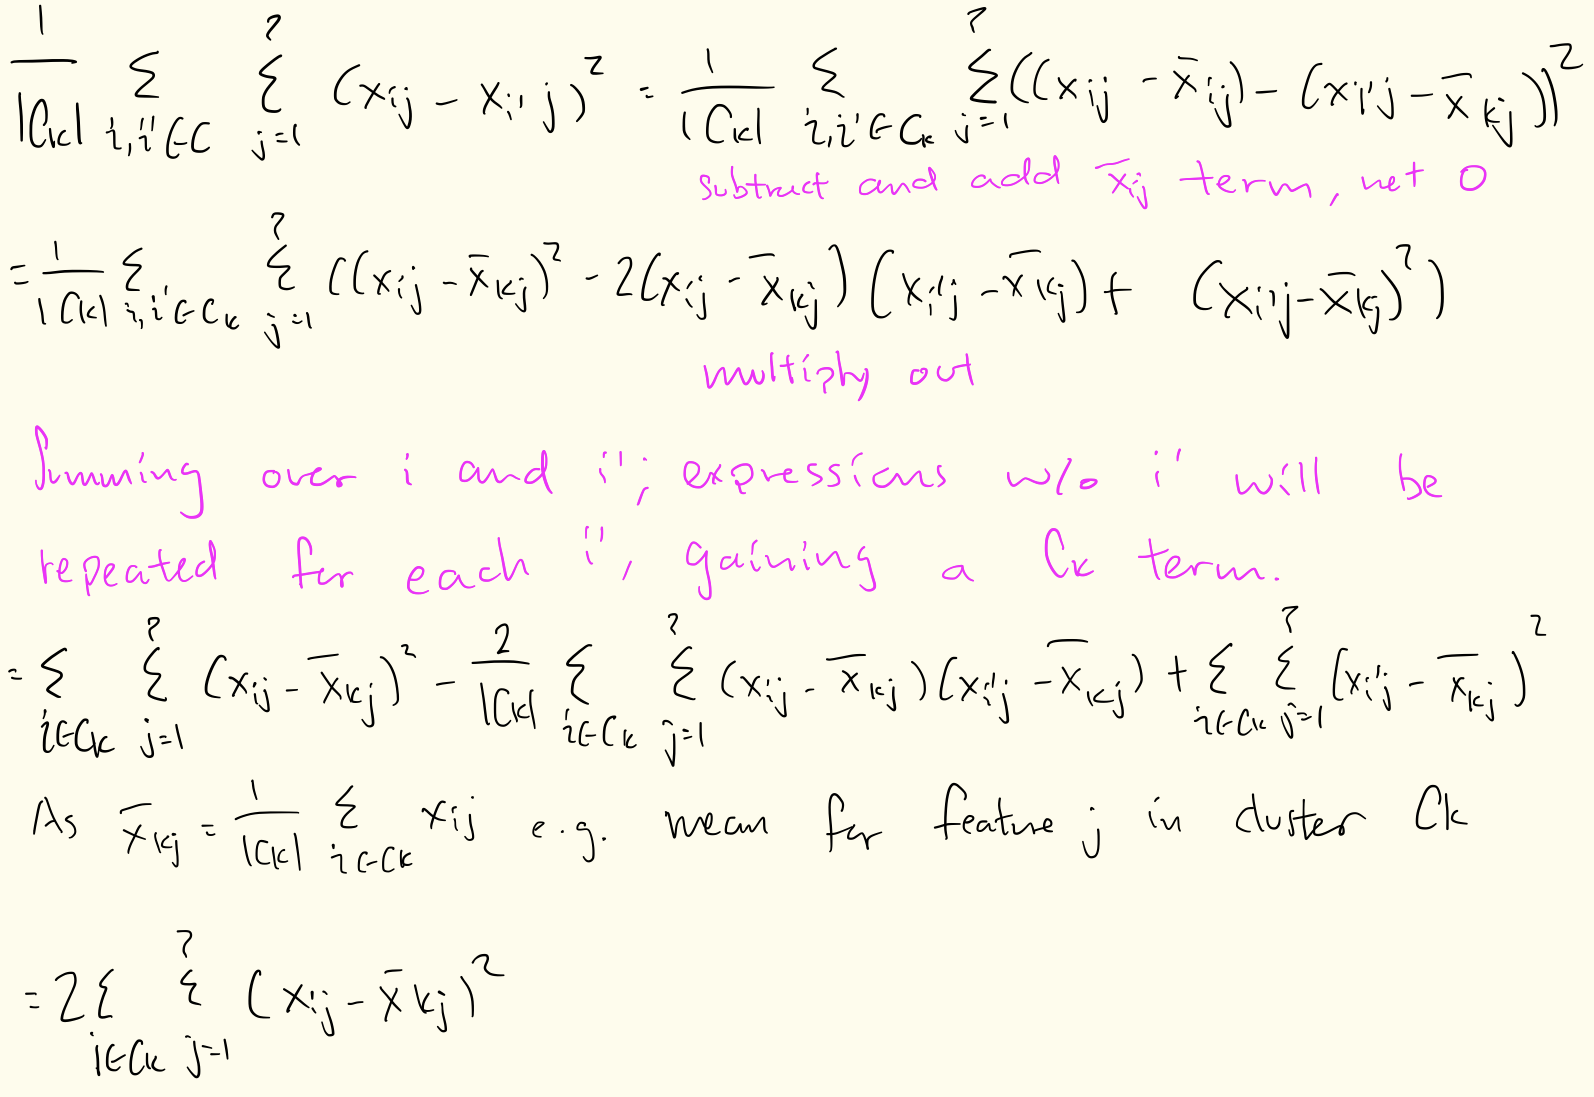 1/|Ck| Σ_{i,i'∈C} Σ_{j=1}^{p} (x_{ij} - x_{i'j})² = 1/|Ck| Σ_{i,i'∈Ck} Σ_{j=1}^{p} ((x_{ij} - x̄_{ij}) - (x_{i'j} - x̄_{kj}))²
subtract and add x̄_{ij} term, net 0
= 1/|Ck| Σ_{i,i'∈Ck} Σ_{j=1}^{p} ((x_{ij} - x̄_{kj})² - 2(x_{ij} - x̄_{kj})(x_{i'j} - x̄_{kj}) + (x_{i'j} - x̄_{kj})²)
multiply out
Summing over i and i'; expressions w/o i' will be
repeated for each i', gaining a Ck term.
= Σ_{i∈Ck} Σ_{j=1}^{p} (x_{ij} - x̄_{kj})² - 2/|Ck| Σ_{i∈Ck} Σ_{j=1}^{p} (x_{ij} - x̄_{kj})(x_{i'j} - x̄_{kj}) + Σ_{i∈Ck} Σ_{j=1}^{p} (x_{i'j} - x̄_{kj})²
As x̄_{kj} = 1/|Ck| Σ_{i∈Ck} x_{ij} e.g. mean for feature j in cluster Ck
= 2 Σ_{i∈Ck} Σ_{j=1}^{p} (x_{ij} - x̄_{kj})²